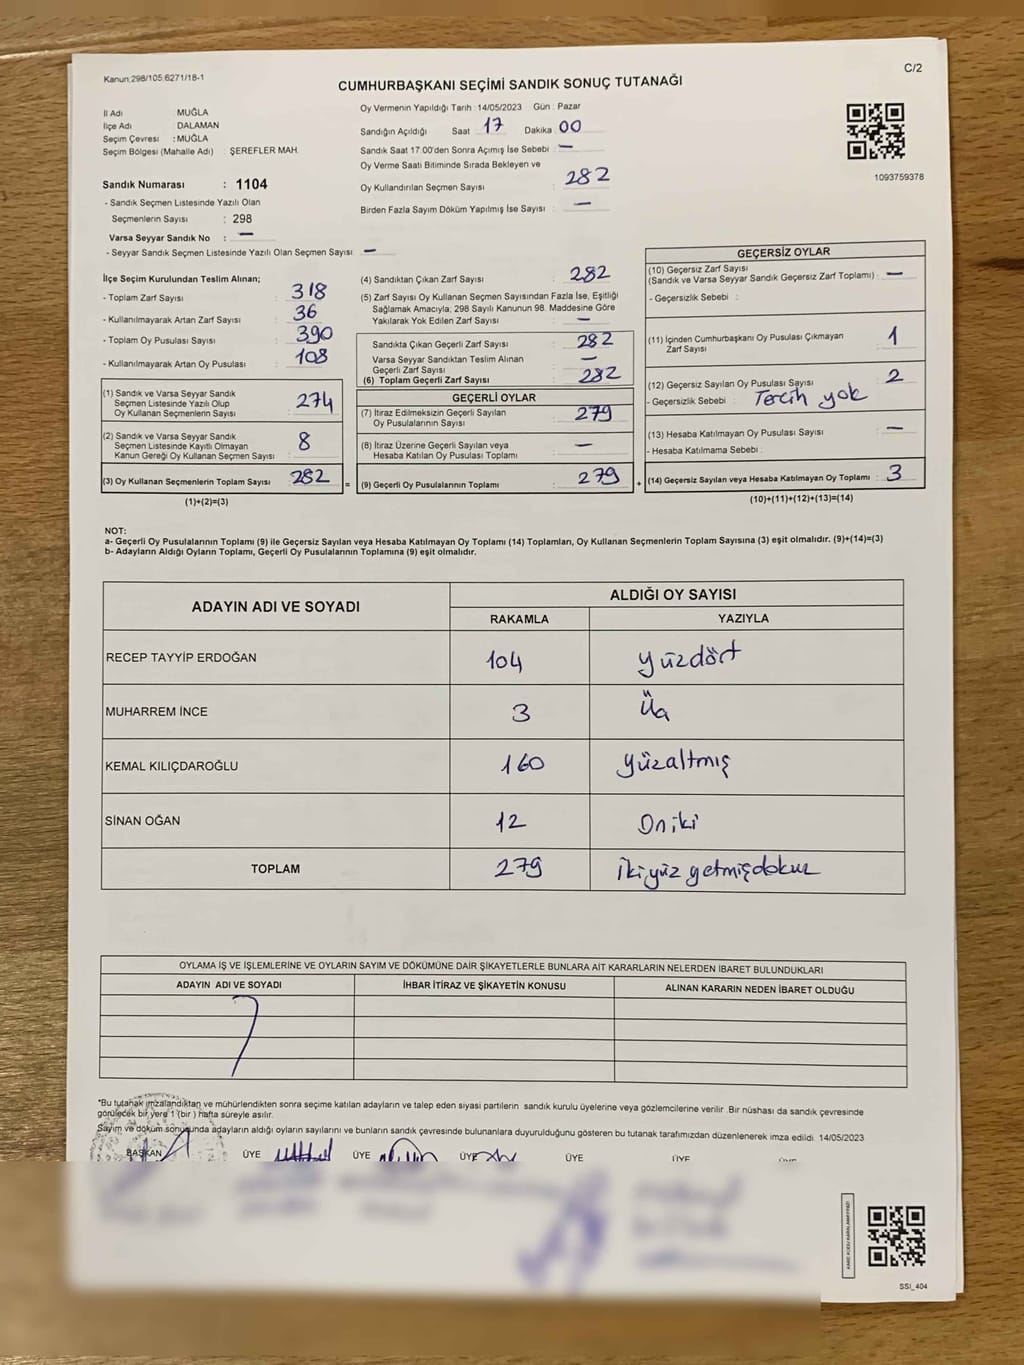 Kanun:298/105:6271/18-1
C/2
CUMHURBAŞKANI SEÇİMİ SANDIK SONUÇ TUTANAĞI
İl Adı : MUĞLA
İlçe Adı : DALAMAN
Seçim Çevresi : MUĞLA
Seçim Bölgesi (Mahalle Adı) : ŞEREFLER MAH.
Sandık Numarası : 1104
- Sandık Seçmen Listesinde Yazılı Olan
Seçmenlerin Sayısı : 298
Varsa Seyyar Sandık No : —
- Seyyar Sandık Seçmen Listesinde Yazılı Olan Seçmen Sayısı : —
Oy Vermenin Yapıldığı Tarih : 14/05/2023 Gün : Pazar
Sandığın Açıldığı Saat 17 Dakika 00
Sandık Saat 17.00'den Sonra Açımış İse Sebebi : —
Oy Verme Saati Bitiminde Sırada Bekleyen ve
Oy Kullandırılan Seçmen Sayısı : 282
Birden Fazla Sayım Döküm Yapılmış İse Sayısı : —
1093759378
İlçe Seçim Kurulundan Teslim Alınan;
- Toplam Zarf Sayısı : 318
- Kullanılmayarak Artan Zarf Sayısı : 36
- Toplam Oy Pusulası Sayısı : 390
- Kullanılmayarak Artan Oy Pusulası : 108
(1) Sandık ve Varsa Seyyar Sandık
Seçmen Listesinde Yazılı Olup
Oy Kullanan Seçmenlerin Sayısı : 274
(2) Sandık ve Varsa Seyyar Sandık
Seçmen Listesinde Kayıtlı Olmayan
Kanun Gereği Oy Kullanan Seçmen Sayısı : 8
(3) Oy Kullanan Seçmenlerin Toplam Sayısı : 282
(1)+(2)=(3)
(4) Sandıktan Çıkan Zarf Sayısı : 282
(5) Zarf Sayısı Oy Kullanan Seçmen Sayısından Fazla İse, Eşitliği
Sağlamak Amacıyla; 298 Sayılı Kanunun 98. Maddesine Göre
Yakılarak Yok Edilen Zarf Sayısı : —
Sandıkta Çıkan Geçerli Zarf Sayısı : 282
Varsa Seyyar Sandıktan Teslim Alınan
Geçerli Zarf Sayısı : —
(6) Toplam Geçerli Zarf Sayısı : 282
GEÇERLİ OYLAR
(7) İtiraz Edilmeksizin Geçerli Sayılan
Oy Pusulalarının Sayısı : 279
(8) İtiraz Üzerine Geçerli Sayılan veya
Hesaba Katılan Oy Pusulası Toplamı : —
= (9) Geçerli Oy Pusulalarının Toplamı : 279
GEÇERSİZ OYLAR
(10) Geçersiz Zarf Sayısı
(Sandık ve Varsa Seyyar Sandık Geçersiz Zarf Toplamı) : —
- Geçersizlik Sebebi :
(11) İçinden Cumhurbaşkanı Oy Pusulası Çıkmayan
Zarf Sayısı : 1
(12) Geçersiz Sayılan Oy Pusulası Sayısı : 2
- Geçersizlik Sebebi : Tercih yok
(13) Hesaba Katılmayan Oy Pusulası Sayısı : —
- Hesaba Katılmama Sebebi :
+ (14) Geçersiz Sayılan veya Hesaba Katılmayan Oy Toplamı : 3
(10)+(11)+(12)+(13)=(14)
NOT:
a- Geçerli Oy Pusulalarının Toplamı (9) ile Geçersiz Sayılan veya Hesaba Katılmayan Oy Toplamı (14) Toplamları, Oy Kullanan Seçmenlerin Toplam Sayısına (3) eşit olmalıdır. (9)+(14)=(3)
b- Adayların Aldığı Oyların Toplamı, Geçerli Oy Pusulalarının Toplamına (9) eşit olmalıdır.
ADAYIN ADI VE SOYADI
ALDIĞI OY SAYISI
RAKAMLA YAZIYLA
RECEP TAYYİP ERDOĞAN 104 Yüzdört
MUHARREM İNCE 3 Üç
KEMAL KILIÇDAROĞLU 160 Yüzaltmış
SİNAN OĞAN 12 Oniki
TOPLAM 279 İkiyüz yetmişdokuz
OYLAMA İŞ VE İŞLEMLERİNE VE OYLARIN SAYIM VE DÖKÜMÜNE DAİR ŞİKAYETLERLE BUNLARA AİT KARARLARIN NELERDEN İBARET BULUNDUKLARI
ADAYIN ADI VE SOYADI İHBAR İTİRAZ VE ŞİKAYETİN KONUSU ALINAN KARARIN NEDEN İBARET OLDUĞU
*Bu tutanak imzalandıktan ve mühürlendikten sonra seçime katılan adayların ve talep eden siyasi partilerin sandık kurulu üyelerine veya gözlemcilerine verilir .Bir nüshası da sandık çevresinde
görülecek bir yere 1 (bir ) hafta süreyle asılır.
Sayım ve döküm sonucunda adayların aldığı oyların sayılarını ve bunların sandık çevresinde bulunanlara duyurulduğunu gösteren bu tutanak tarafımızdan düzenlenerek imza edildi. 14/05/2023
BAŞKAN ÜYE ÜYE ÜYE ÜYE ÜYE ÜYE
SSI_404